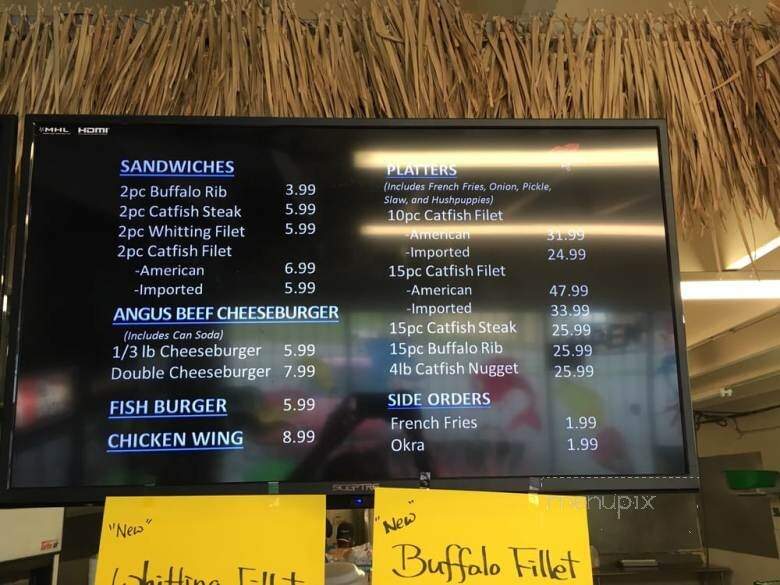 MHL HDMI
SANDWICHES
2pc Buffalo Rib 3.99
2pc Catfish Steak 5.99
2pc Whitting Filet 5.99
2pc Catfish Filet
-American 6.99
-Imported 5.99
ANGUS BEEF CHEESEBURGER
(Includes Can Soda)
1/3 lb Cheeseburger 5.99
Double Cheeseburger 7.99
FISH BURGER 5.99
CHICKEN WING 8.99
PLATTERS
(Includes French Fries, Onion, Pickle,
Slaw, and Hushpuppies)
10pc Catfish Filet
-American 31.99
-Imported 24.99
15pc Catfish Filet
-American 47.99
-Imported 33.99
15pc Catfish Steak 25.99
15pc Buffalo Rib 25.99
4lb Catfish Nugget 25.99
SIDE ORDERS
French Fries 1.99
Okra 1.99
SCEPTRE
menupix
"New"
Whitting Fillet
"New"
Buffalo Fillet